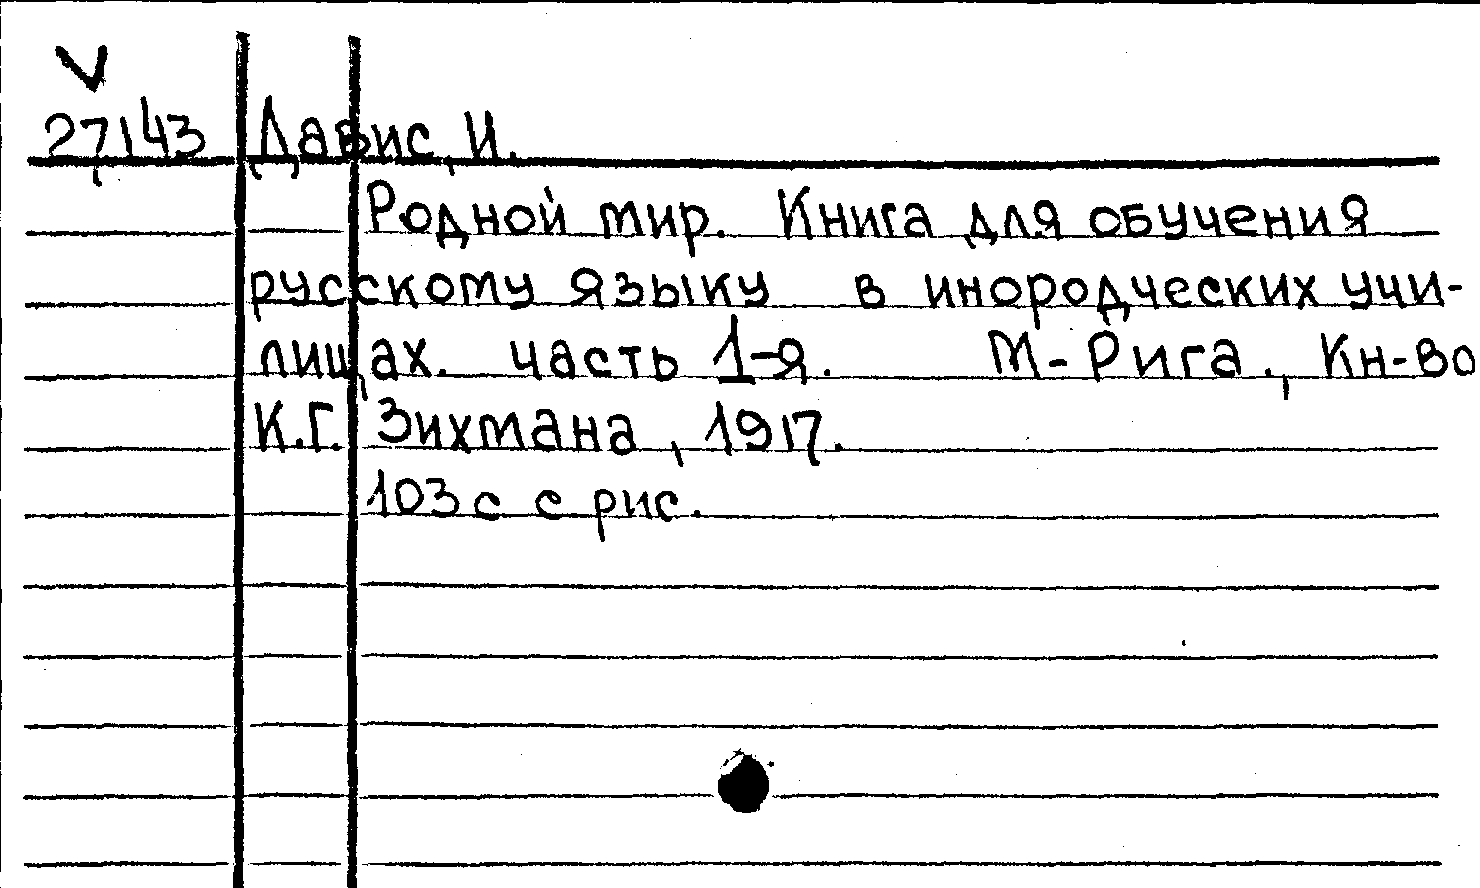 V
27143 Давис, И.
Родной мир. Книга для обучения
русскому языку в инородческих учи-
лищах. часть 1-я. М-Рига., Кн-во
К.Г. Зихмана, 1917.
103 с с рис.